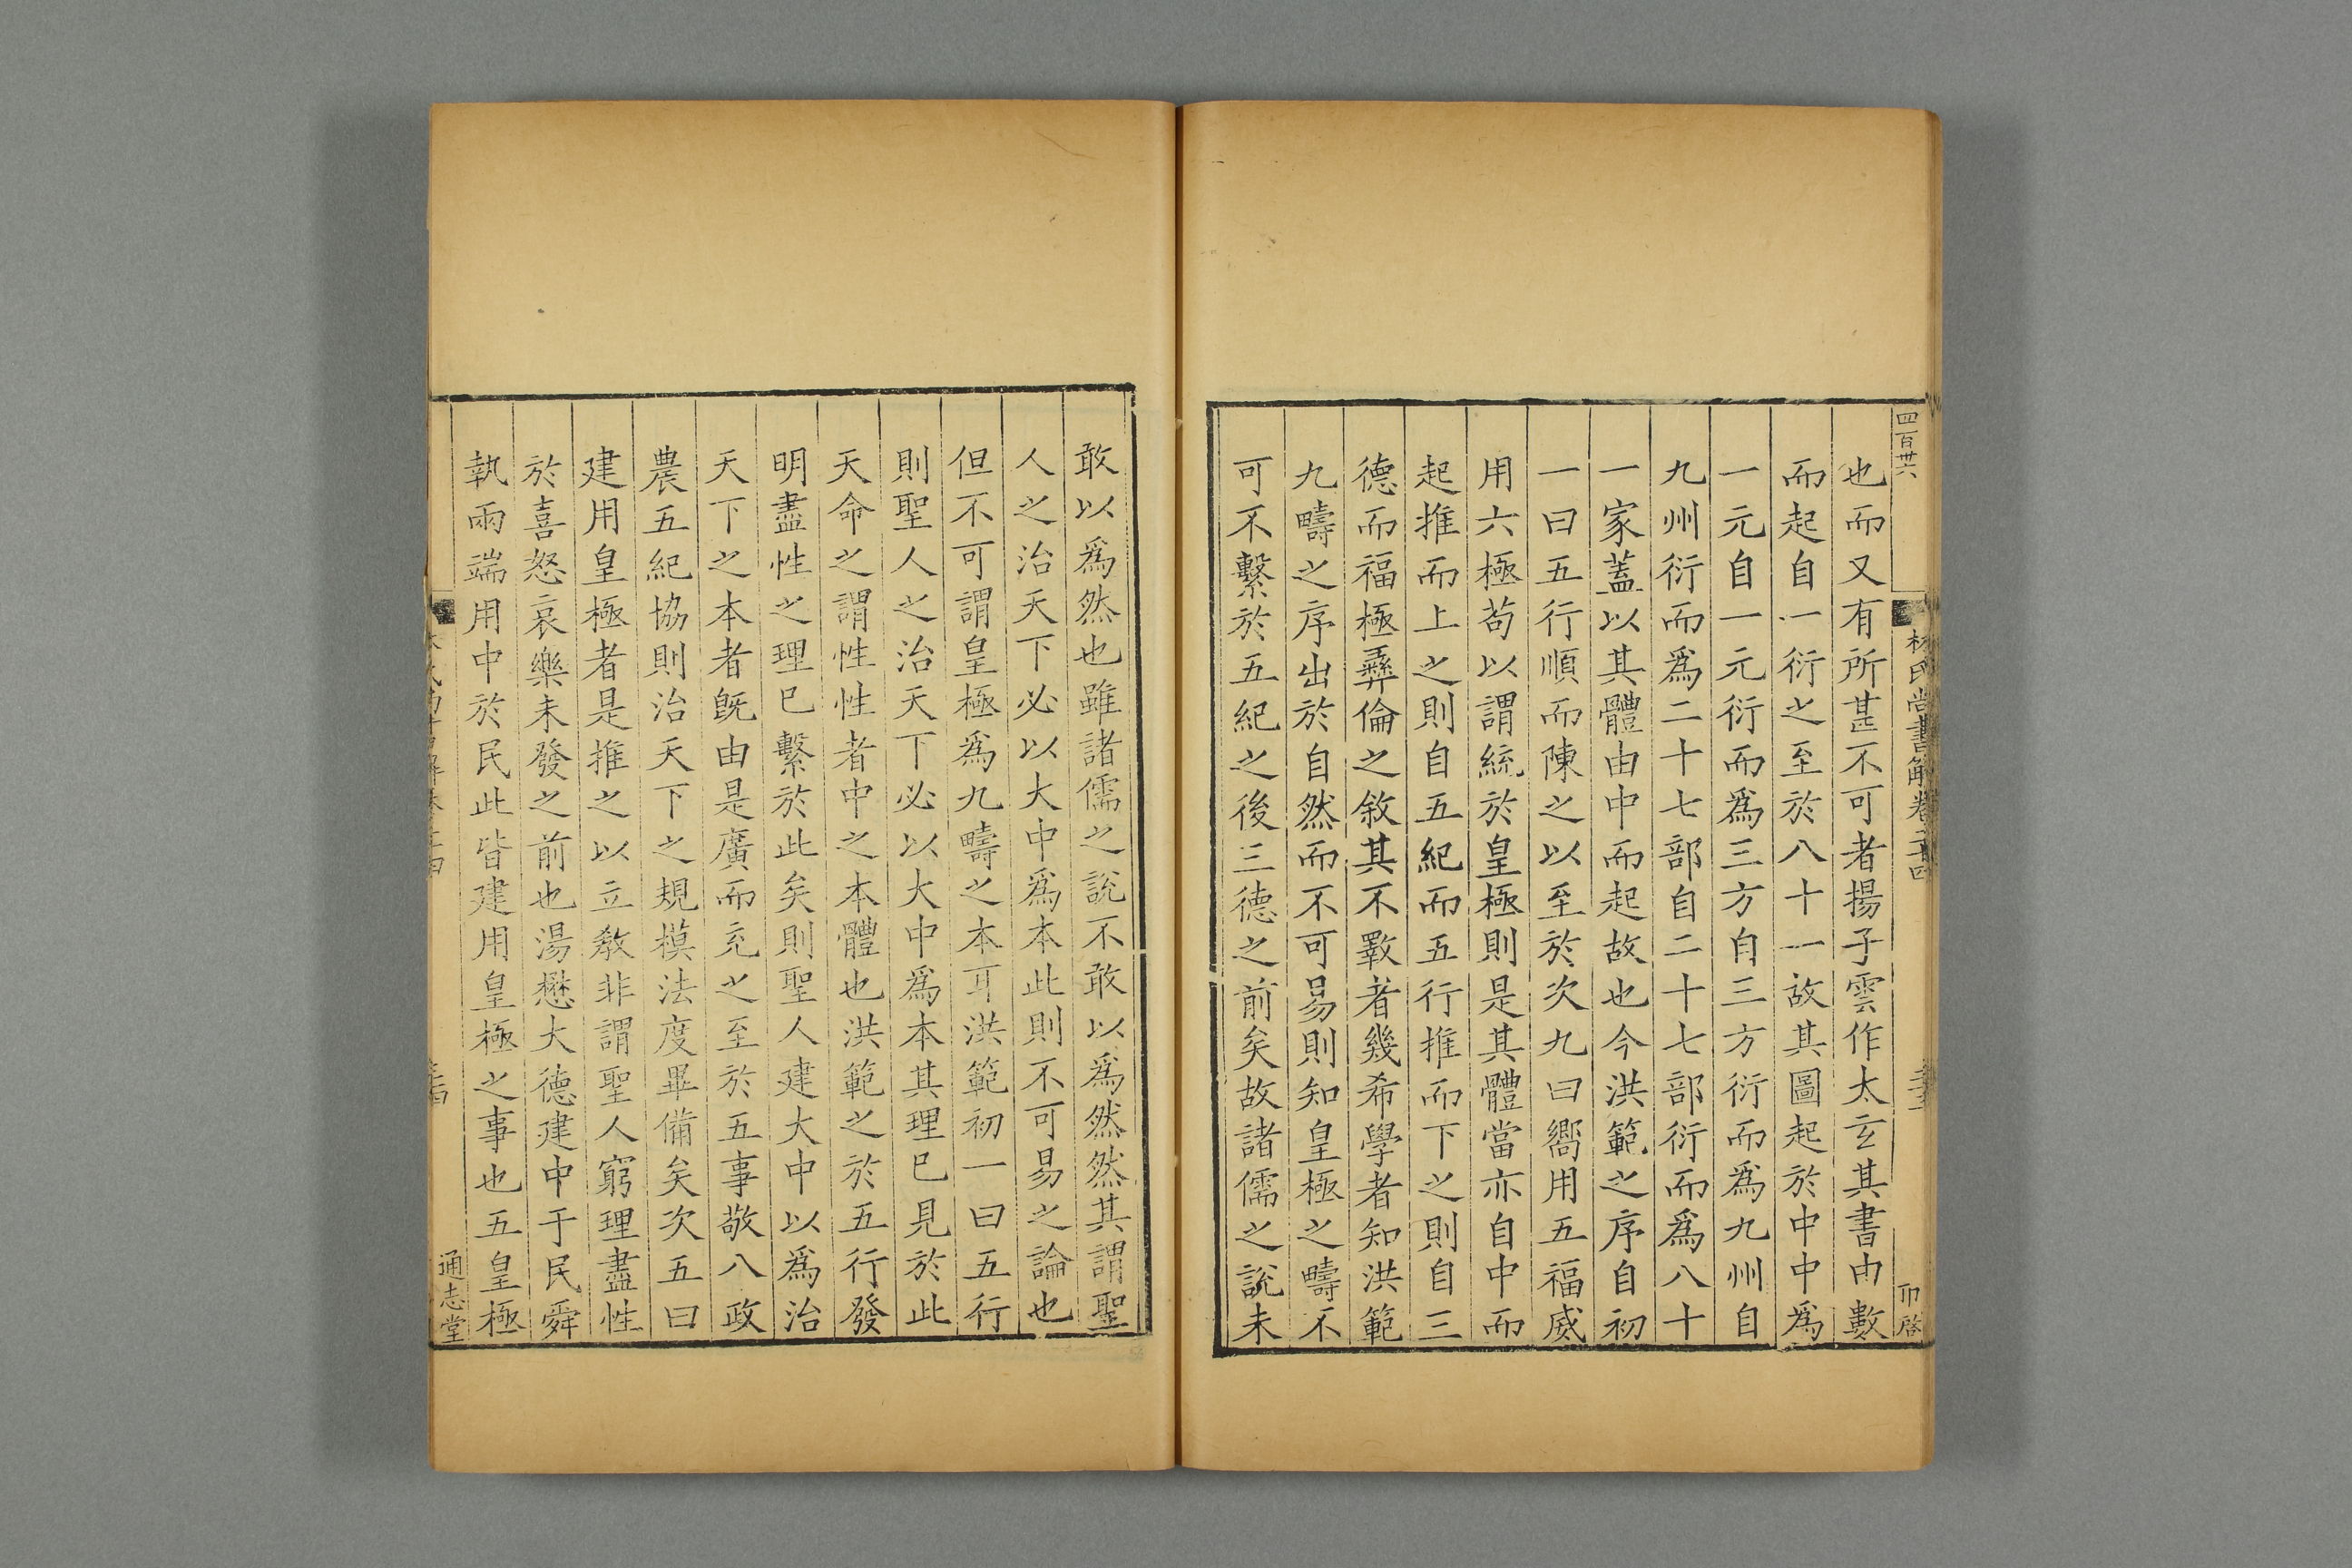 四百卅六
林氏尚書解卷二十四
卬啓
也而又有所甚不可者揚子雲作太玄其書由數
而起自一衍之至於八十一故其圖起於中中爲
一元自一元衍而爲三方自三方衍而爲九州自
九州衍而爲二十七部自二十七部衍而爲八十
一家蓋以其體由中而起故也今洪範之序自初
一曰五行順而陳之以至於次九曰嚮用五福威
用六極苟以謂統於皇極則是其體當亦自中而
起推而上之則自五紀而五行推而下之則自三
德而福極彞倫之敘其不斁者幾希學者知洪範
九疇之序出於自然而不可易則知皇極之疇不
可不繫於五紀之後三德之前矣故諸儒之說未
敢以爲然也雖諸儒之說不敢以爲然然其謂聖
人之治天下必以大中爲本此則不可易之論也
但不可謂皇極爲九疇之本耳洪範初一曰五行
則聖人之治天下必以大中爲本其理已見於此
天命之謂性性者中之本體也洪範之於五行發
明盡性之理已繫於此矣則聖人建大中以爲治
天下之本者旣由是廣而充之至於五事敬八政
農五紀協則治天下之規模法度畢備矣次五曰
建用皇極者是推之以立敎非謂聖人窮理盡性
於喜怒哀樂未發之前也湯懋大德建中于民舜
執兩端用中於民此皆建用皇極之事也五皇極
通志堂